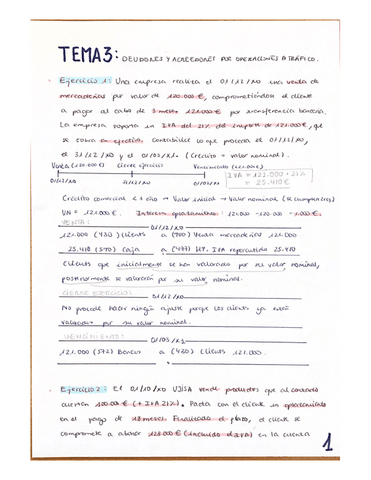 TEMA 3: DEUDORES Y ACREEDORES POR OPERACIONES DE TRÁFICO.
Ejercicio 1: Una empresa realiza el 01/12/X0 una venta de
mercaderías por valor de 120.000 €, comprometiéndose el cliente
a pagar al cabo de 3 meses 121.000 € por transferencia bancaria.
La empresa soporta un IVA del 21% del importe de 121.000 €, que
se cobra en efectivo. Contabilice lo que proceda el 01/12/X0,
el 31/12/X0 y el 01/03/X1. (Crédito = valor nominal).
Venta (120.000 €) Cierre ejercicio Vencimiento (121.000 €)
IVA = 121.000 · 21%
= 25.410 €
01/12/X0 31/12/X0 01/03/X1
Crédito comercial < 1 año → Valor inicial → Valor nominal
VN = 121.000 €. Intereses 121.000 - 120.000 = 1.000 €.
VENTA: 01/12/X0
121.000 (430) Clientes a (700) Venta mercaderías 121.000
25.410 (570) Caja a (477) HP. IVA repercutido 25.410
Clientes que inicialmente se han valorado por su valor nominal,
posteriormente se valorarán por su valor nominal.
CIERRE EJERCICIO: 31/12/X0
No procede hacer ningún ajuste porque los clientes ya están
valorados por su valor nominal.
VENCIMIENTO: 01/03/X1
121.000 (572) Bancos a (430) Clientes 121.000
Ejercicio 2: El 01/10/X0 UJISA vende productos que al contado
cuestan 100.000 € (+ IVA 21%). Pacta con el cliente un aplazamiento
en el pago de 18 meses. Finalizado el plazo, el cliente se
compromete a abonar 128.000 € (incluido el IVA) en la cuenta
1